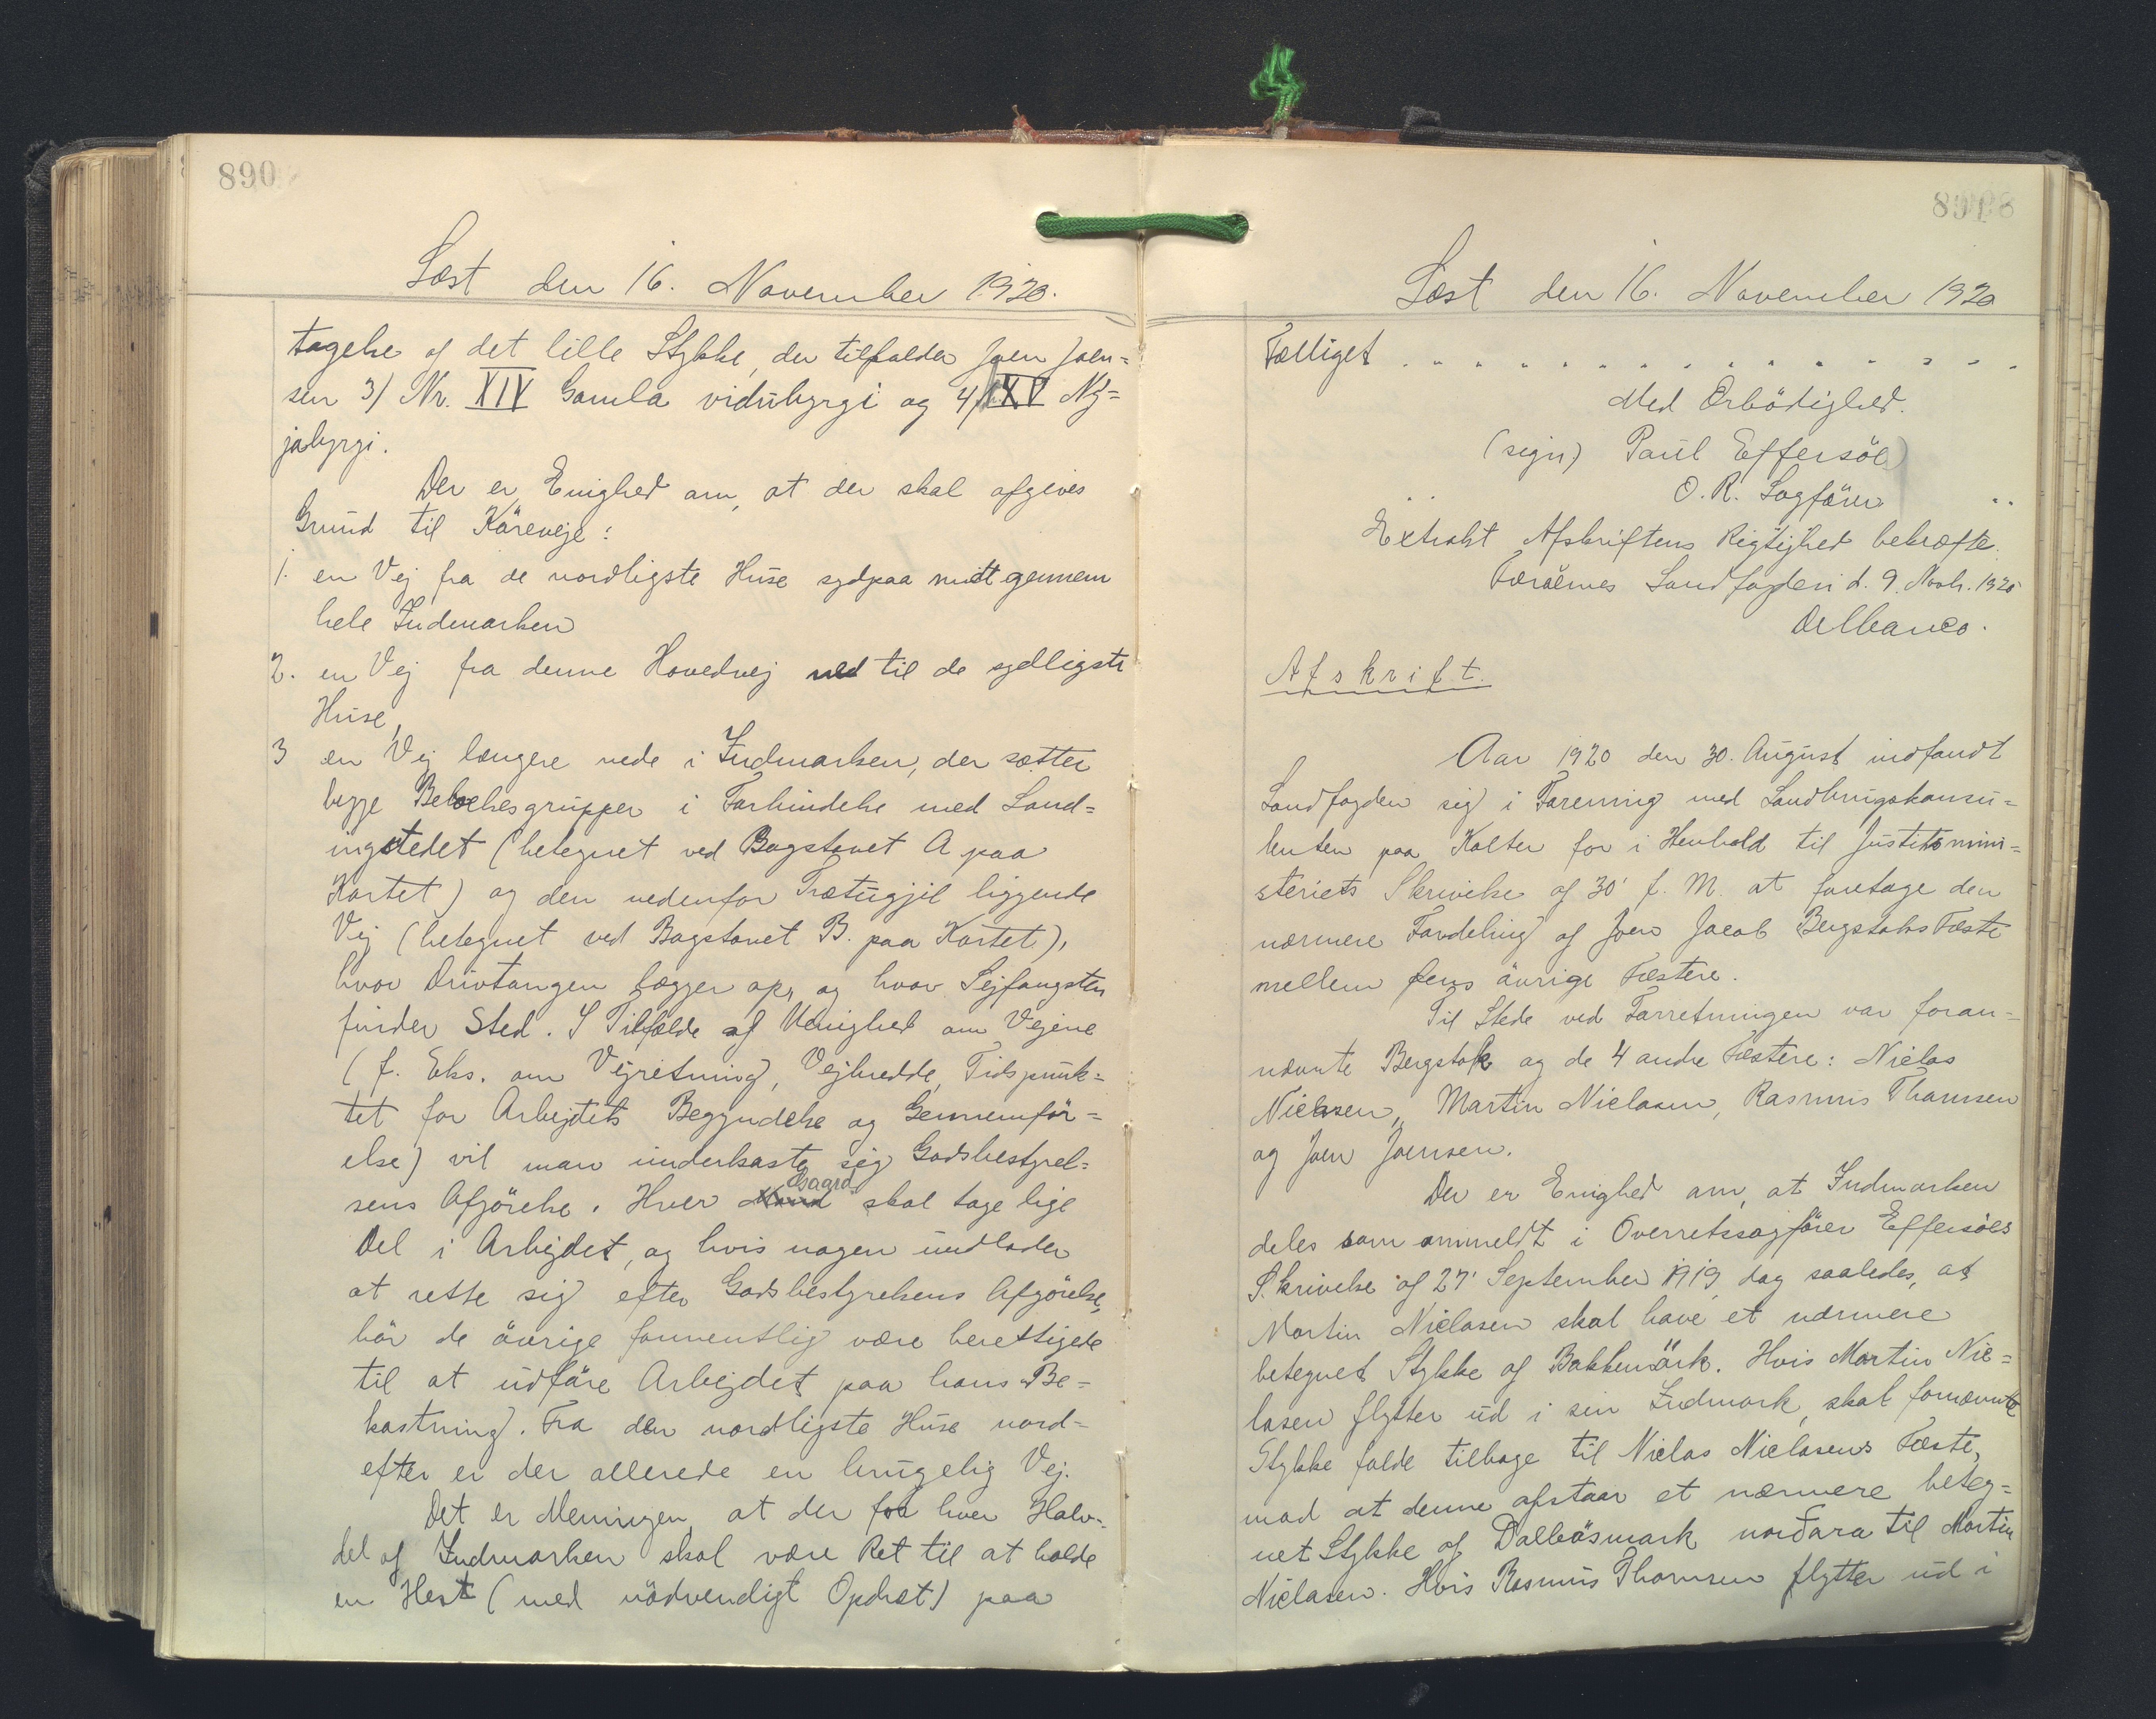 890
Læst den 16. November 1920.
tagelse af det lille Stykke, der tilfalder Joen Joen=
sen 3/ Nr. XIV Gamla vidubyrgi og 4/ XV Ny=
jabyrgi.
Der er Enighed om, at der skal afgives
Grund til Köreveje:
1. en Vej fra de nordligste Huse sydpaa midt gennem
hele Indmarken
2. en Vej fra denne Hovedvej ned til de sydligste
Huse,
3 en Vej længere nede i Indmarken, der sætter
begge Beboelsesgrupper i Forbindelse med Land=
ingstedet (betegnet ved Bogstavet A paa
Kortet) og den nedenfor Trætugjil liggende
Vej (betegnet ved Bogstavet B. paa Kortet),
hvor Drivtangen lægger op, og hvor Sejfangsten
finder Sted. I Tilfælde af Uenighed om Vejene
(f. Eks. om Vejretning, Vejbredde, Tidspunk=
tet for Arbejdets Begyndelse og Gennemför=
else) vil man underkaste sig Godsbestyrel=
sens Afgörelse. Hver Mand Bsgaard skal tage lige
Del i Arbejdet, og hvis nogen undlader
at rette sig efter Godsbestyrelsens Afgörelse,
bör de övrige formentlig være berettigede
til at udföre Arbejdet paa hans Be=
kostning. Fra den nordligste Huse nord=
efter er der allerede en brugelig Vej.
Det er Meningen, at der for hver Halv=
del af Indmarken skal være Ret til at holde
en Hest (med nödvendigt Opdræt) paa
891
Læst den 16. November 1920
Fælliget . . . . . . . . . . . . . . .
Med Ærbödighed.
(sign) Paul Effersöe
O. R. Sagförer
Extrakt Afskriftens Rigtighed bekræfte.
Færöernes Landfogderi d. 9. Novb. 1920
Delbanco.
Afskrift.
Aar 1920 den 30. August indfandt
Landfogden sig i Forening med Landbrugskonsu=
lenten paa Kolter for i Henhold til Justitsmini=
steriets Skrivelse af 30' f. M. at foretage den
nærmere Fordeling af Joen Jacob Bergstoks Fæste
mellem Öens övrige Fæstere.
Til Stede ved Forretningen var foran=
nævnte Bergstok og de 4 andre Fæstere: Niclas
Niclasen, Martin Niclasen, Rasmus Thomsen
og Joen Joensen.
Der er Enighed om, at Indmarken
deles som ommeldt i Overretssagförer Effersöes
Skrivelse af 27' September 1919, dog saaledes, at
Martin Niclasen skal have et nærmere
betegnet Stykke af Bakkemörk. Hvis Martin Nic=
lasen flytter ud i sin Indmark, skal fornævnte
Stykke falde tilbage til Niclas Niclasens Fæste,
mod at denne afstaar et nærmere beteg=
net Stykke af Dalbösmark norðara til Martin
Niclasen. Hvis Rasmus Thomsen flytter ud i